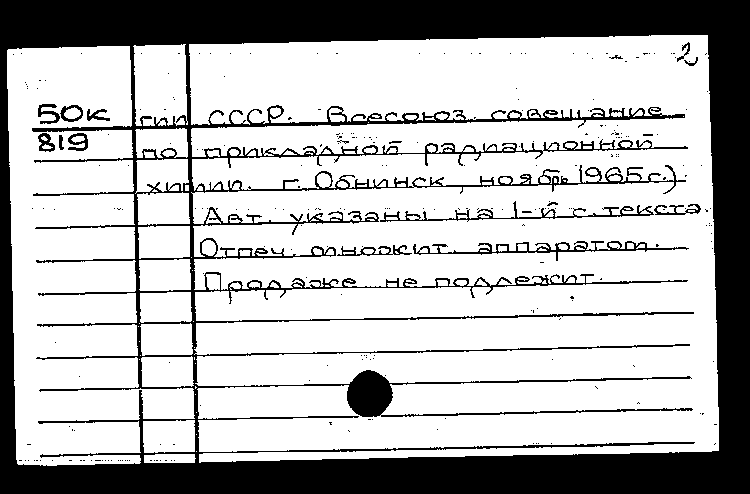 2
50к гии СССР. Всесоюз. совещание
819 по прикладной радиационной
химии. г. Обнинск, ноябрь 1965 г.)
Авт. указаны на 1-й с. текста.
Отпеч. множит. аппаратом.
Продаже не подлежит.